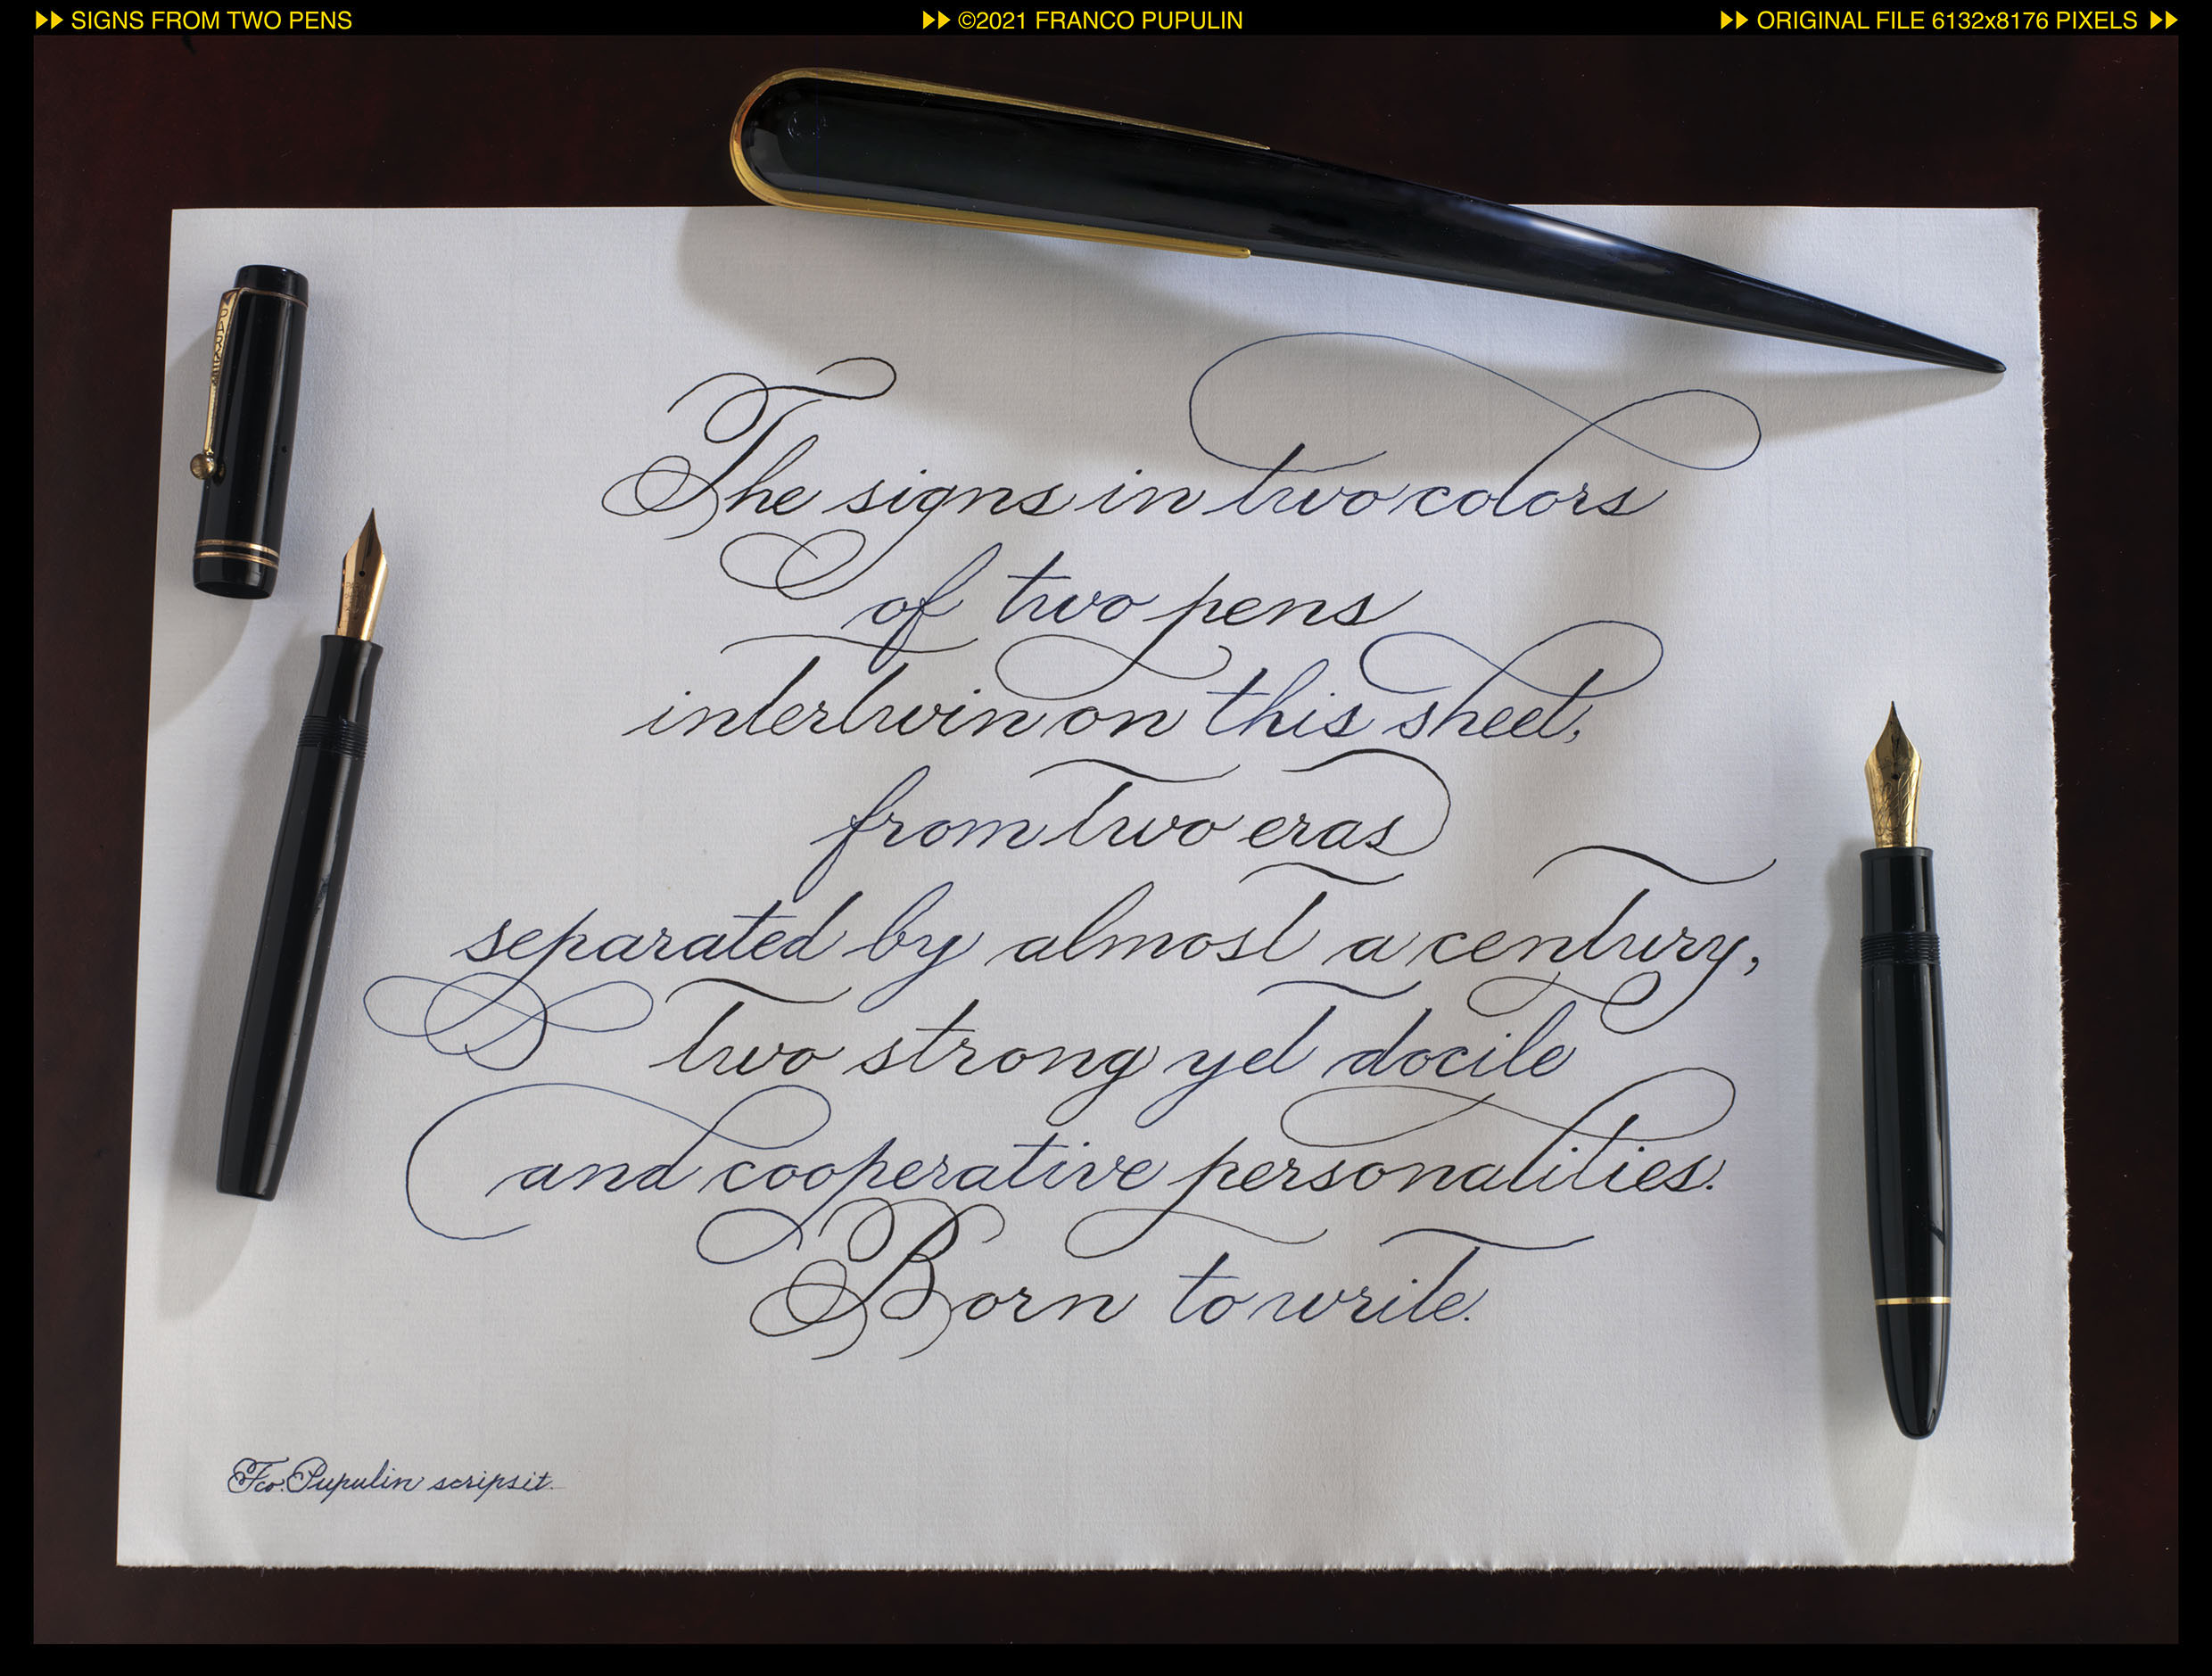 SIGNS FROM TWO PENS
©2021 FRANCO PUPULIN
ORIGINAL FILE 6132x8176 PIXELS
The signs in two colors
of two pens
intertwin on this sheet,
from two eras
separated by almost a century,
two strong yet docile
and cooperative personalities.
Born to write.
Fco. Pupulin scripsit.